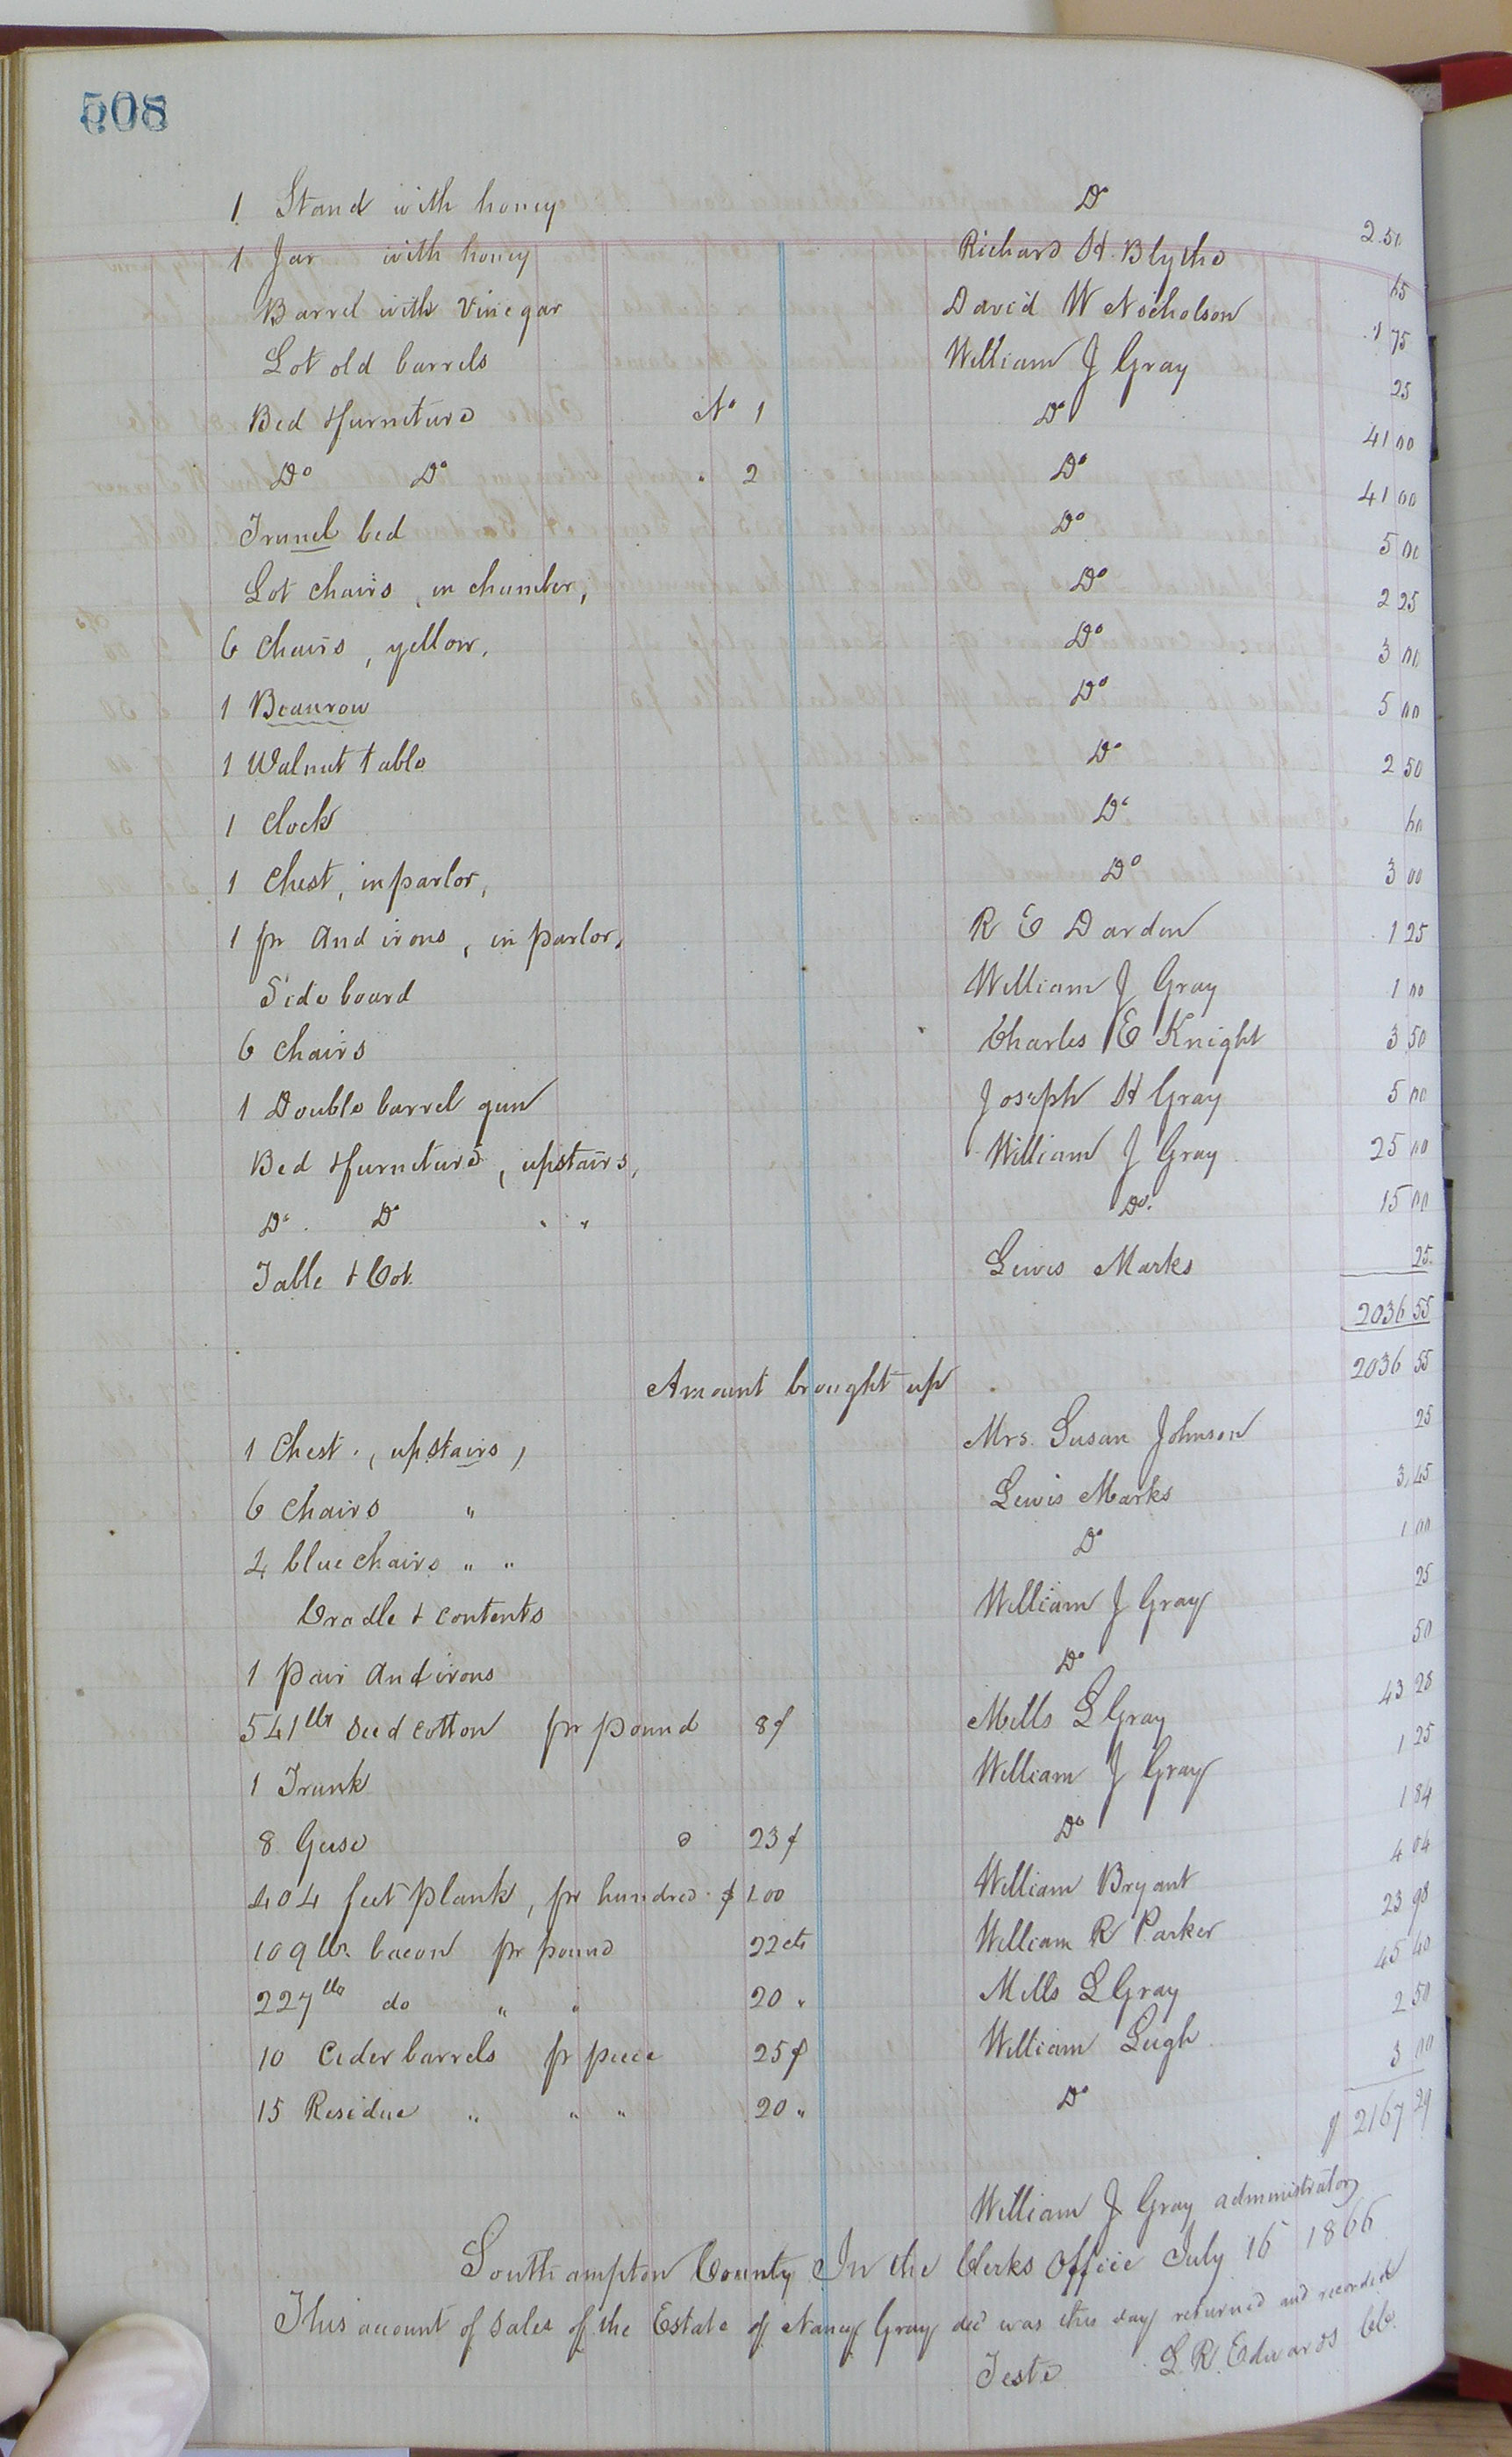 508
1 Stand with honey Do 2.50
1 Jar with honey Richard H. Blythe 65
Barrel with Vinegar David W Nicholson 1 75
Lot old barrels William J Gray 25
Bed & furniture No 1 Do 41 00
Do Do " 2 Do 41 00
Trunel bed Do 5 00
Lot chairs, in chamber, Do 2 25
6 Chairs, yellow, Do 3 00
1 Beaurow Do 5 00
1 Walnut table Do 2 50
1 Clock Do 60
1 Chest, in parlor, Do 3 00
1 pr And irons, in parlor, R E Darden 1 25
Side board William J Gray 1 00
6 Chairs Charles E Knight 3 50
1 Double barrel gun Joseph H Gray 5 00
Bed & furniture, upstairs, William J Gray 25 00
Do Do " " Do. 15 00
Table & Cot. Lewis Marks 25.
2036 55
Amount brought up 2036 55
1 Chest, upstairs, Mrs. Susan Johnson 25
6 Chairs " Lewis Marks 3,45
4 blue chairs " " Do 1 00
Cradle & contents William J Gray 25
1 Pair Andirons Do 50
541 lbs Seed cotton pr pound 8¢ Mills L Gray 43 28
1 Trunk William J Gray 1 25
8 Geese @ 23¢ Do 1 84
404 feet Plank, pr hundred $1.00 William Bryant 4 04
109 lbs bacon pr pound 22 cts William R Parker 23 98
227 lbs do " " 20 " Mills L Gray 45 40
10 Cider barrels pr piece 25¢ William Leigh 2 50
15 Residue " " " 20 " Do 3 00
$ 2167 29
William J Gray administrator
Southampton County In the Clerks Office July 16 1866
This account of Sales of the Estate of Nancy Gray decd was this day returned and recorded
Teste L. R. Edwards Clk.